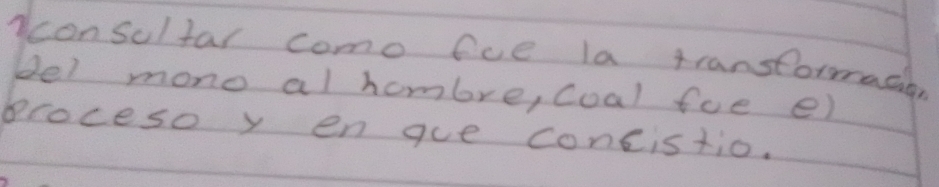 1consultar como fue la transformación
del mono al hombre, coal fue el
proceso y en que concistio.